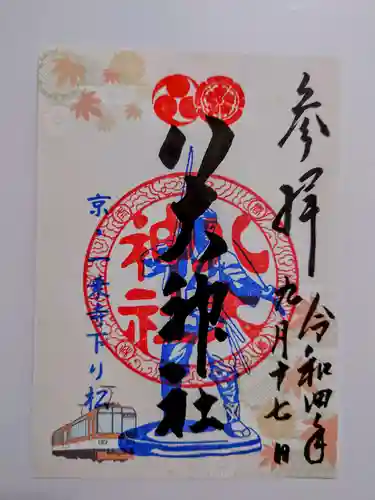 参拝
令和四年
九月十七日
八大神社
八大
神社
京・一乗寺下り松